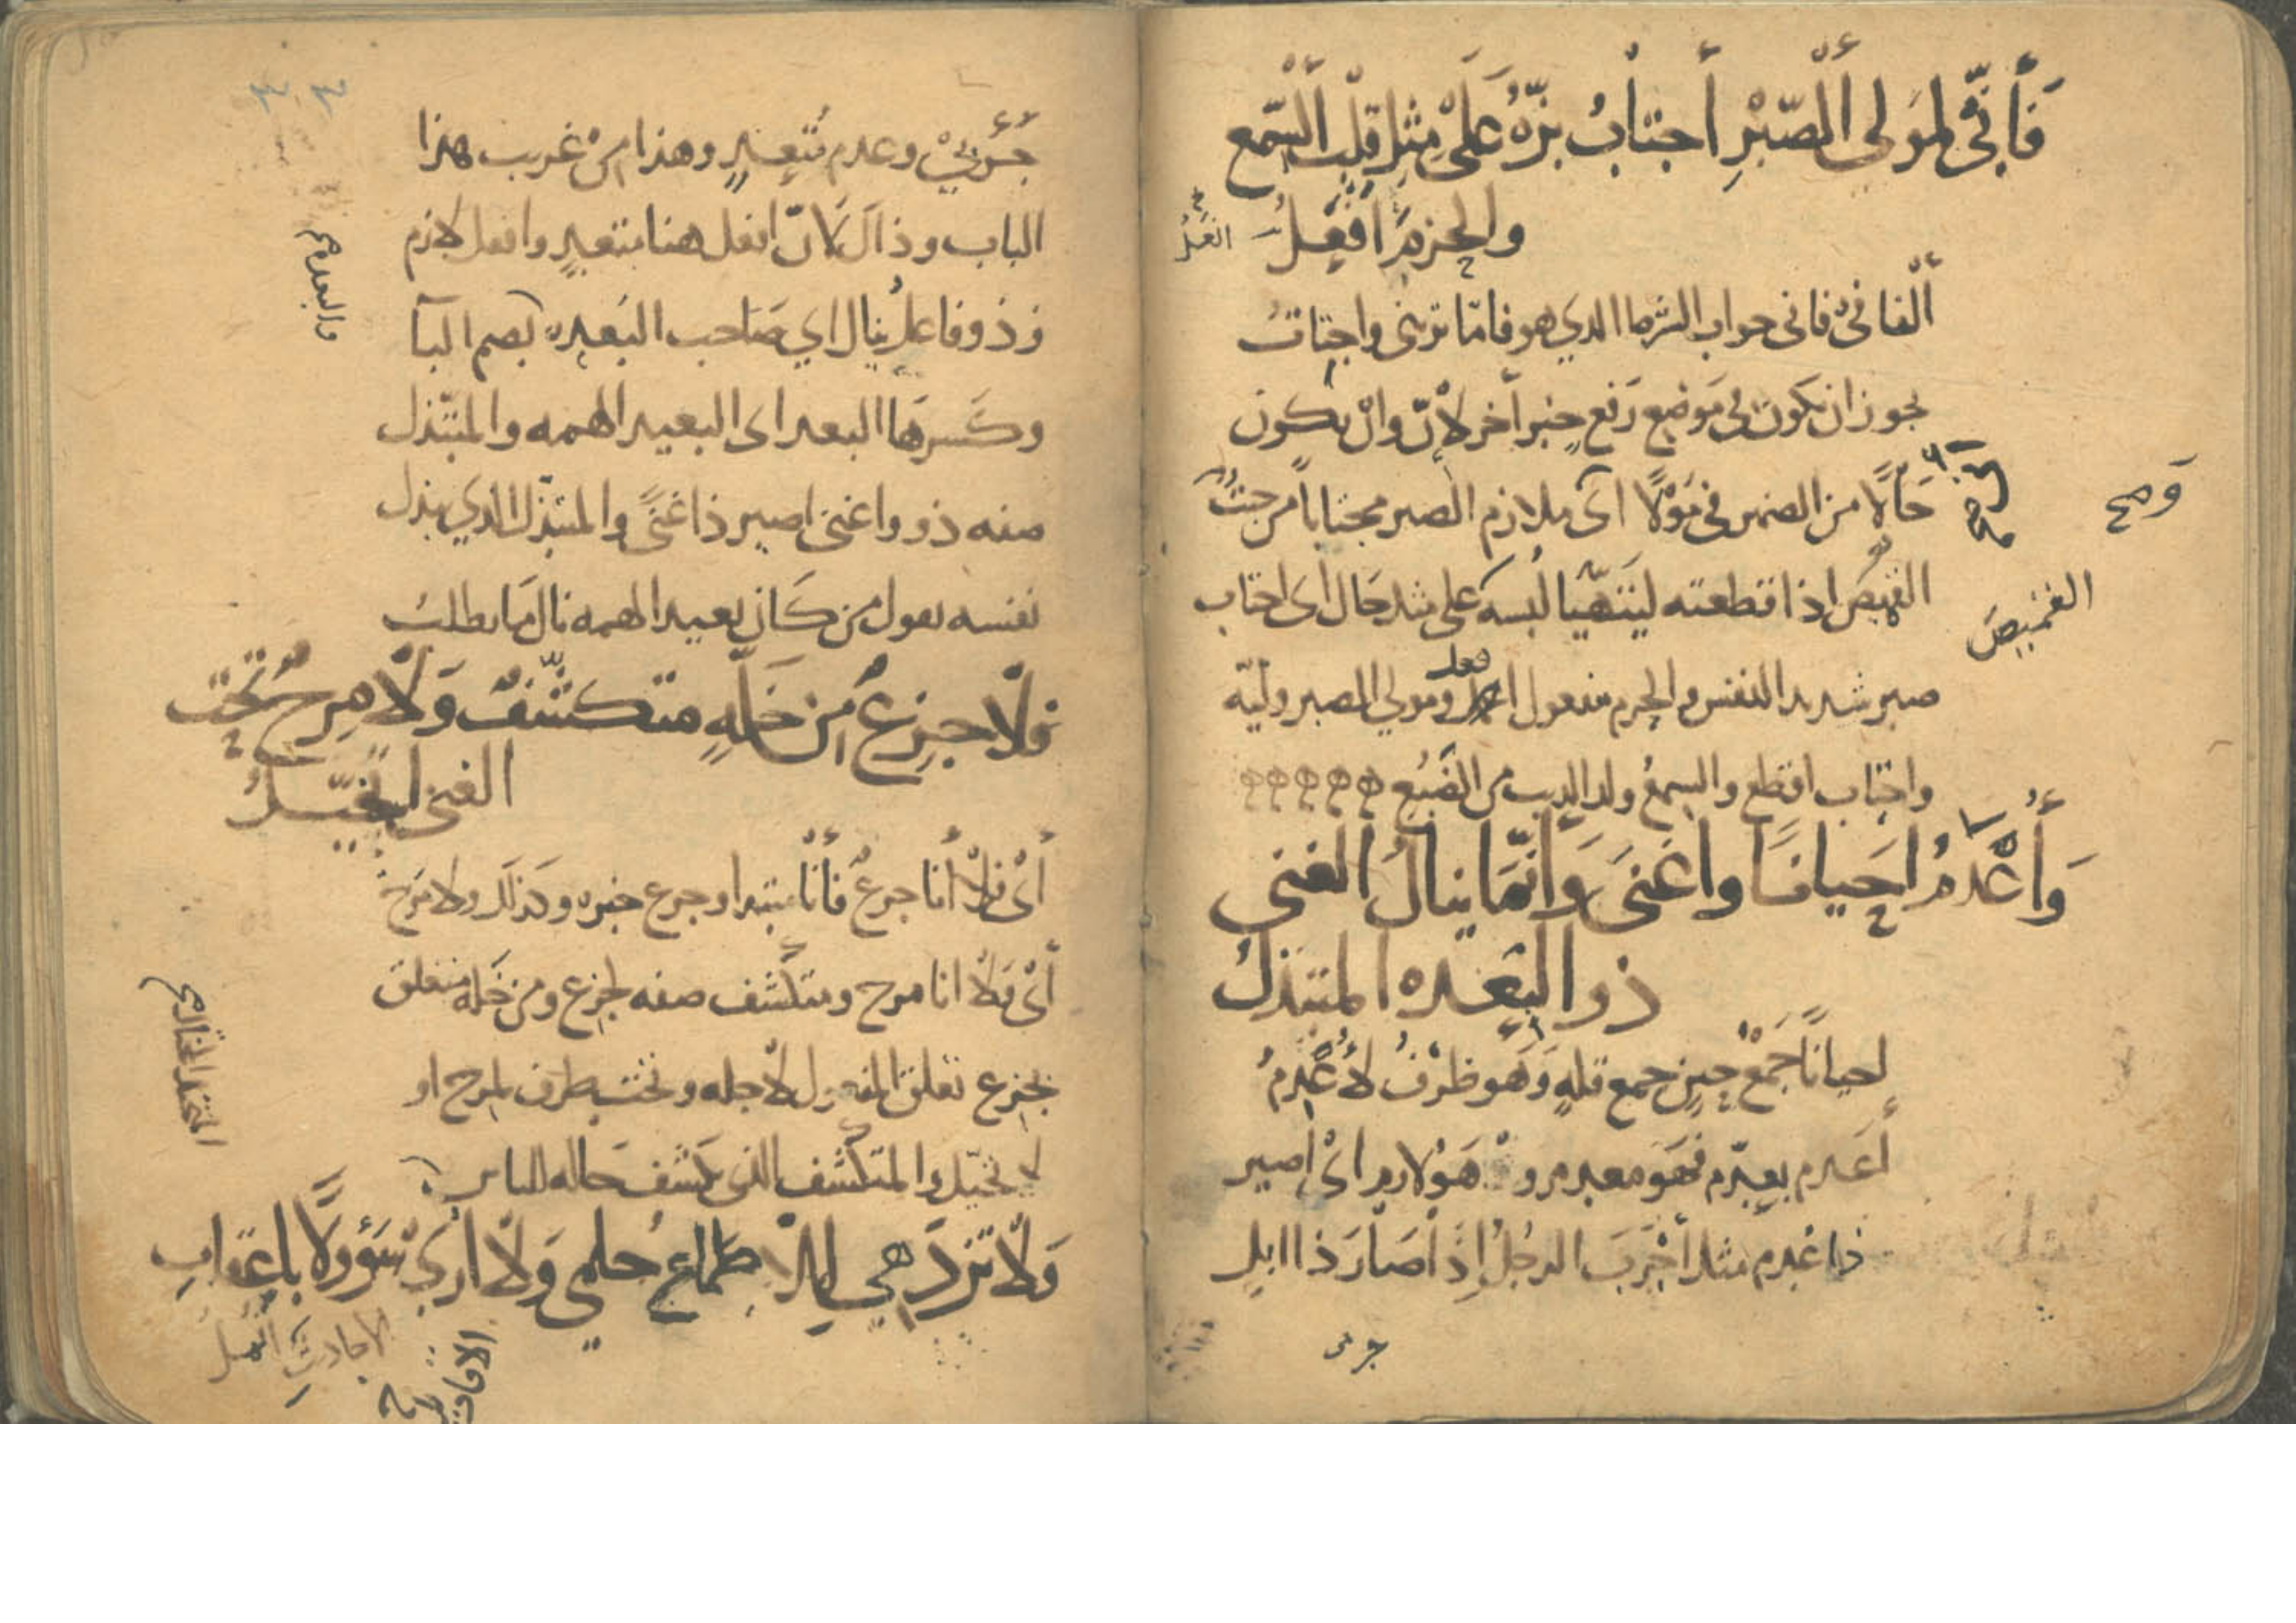 فَأِنِّى لمَولى الصّبْرِ أجتابُ بزّهُ عَلَىْ مِثلِ قلبِ السّمع
والحزمَ افعَلُ
الفا فى فانى جواب الشرط الدي هو فامّا تريْنى واجتابُ
يجوز ان يكون في مَوْضع رَفع خبر آخر لأنّ وانْ يكون
حَالًا من الضمير فى مَوْلًا اى ملازم الصبر مجتاباً من جبتُ
القميصَ اذا قطعته ليَتَهيّا لُبسه على مثل حَال اى اجتاب
صبر شديد النفس والحزم مفعول افعل ومولي الصبر وليّه
واجتاب اقطع والسمعُ ولد الديب من الضَبُع
القميصَ
وَأُعْدِمُ احَيانًا واغنَى وَانّمَا ينالُ الغنى
ذو البُعده المتبذلُ
احيانًا جَمْعُ حِينٍ جمع قلهٍ وَهُو ظرْفُ لأُعْدِمُ
أعدم يعدم فهَو معدم وهَوُ لازم اىْ اصير
ذا عُدم مثل أجْرَبَ الرجُلُ إذَا صَارَ ذا ابلٍ
جربى
جُرْبيْ وعدم مُتعَدٍ وهذا منْ غريب هذا
الباب وذاك لانّ افعل هنا متعدٍ وافعل لازم
وذو فاعلُ ينال اي صَاحب البُعده بضم البآ
وكسرهَا البعد اى البعيد الهمه والمتبّذل
صفه ذو واغنى اصير ذا غنًى والمتبّذل الذي يبذل
نفسه يقول من كَان بعيد الهمه نال مَا يطلبُ
فلا جزعٌ من خَلّهٍ متكشّفٌ وَلا مرحٌ تحت
الغنى اتخيّلُ
أىْ فلا أنا جزعٌ فأنا مبتدا وجزع خبره وكذلك ولا مَرحٌ
أىْ ولا انا مرح ومتكشف صفه لجزع ومن خَله متعلق
بجزع تعلق المفعول لأجله وتحت ظرف لمرح او
لاتخيّل والمتكشف الذى يكشف حَاله للناس
وَلا تزدَهي الاطماعُ حُلمي وَلا ارىْ سَؤولًا باعقابِ
الاحاديثِ انمل